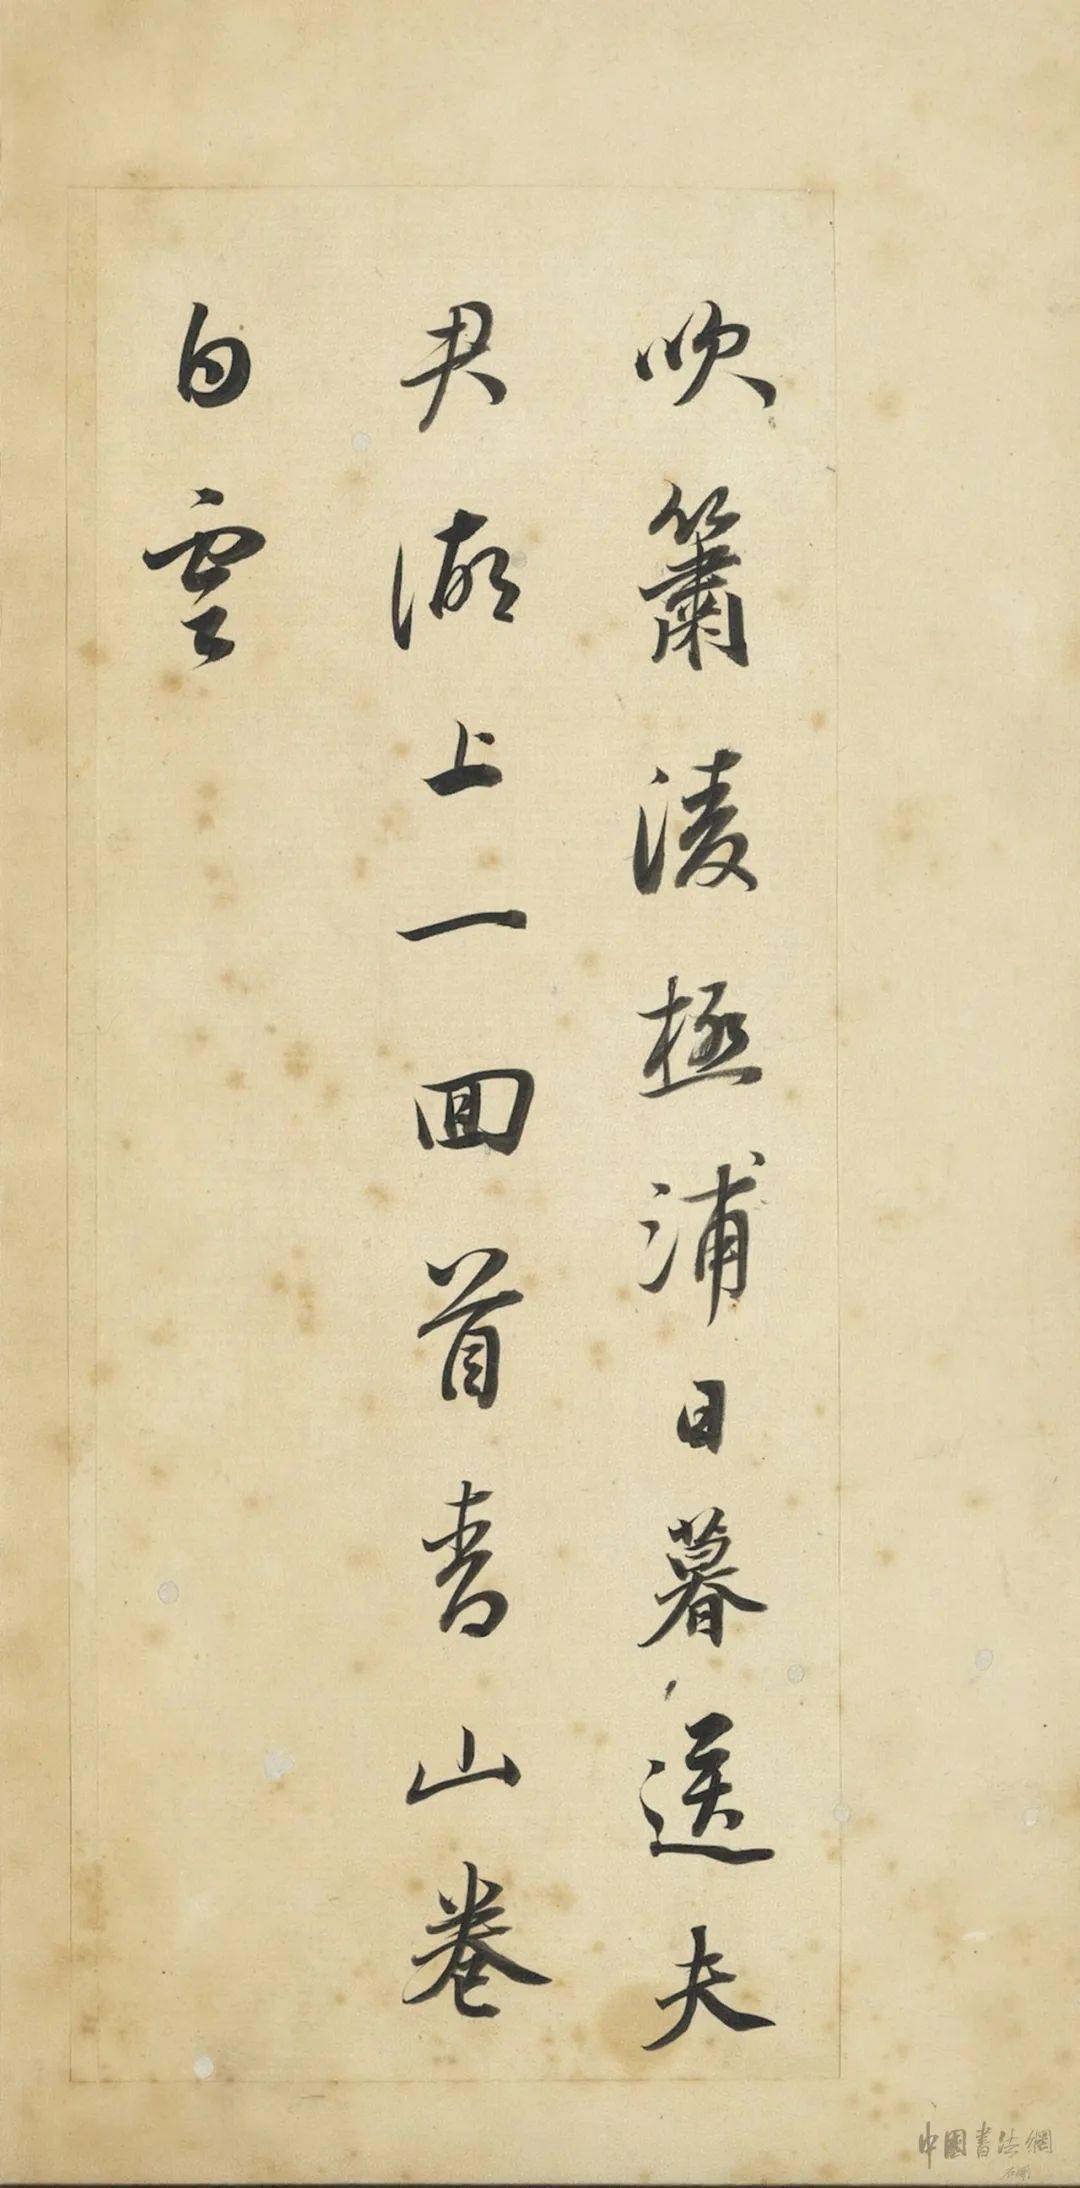 吹簫淩極浦日暮送夫
君湖上一回首青山卷
白雲
中國書法網